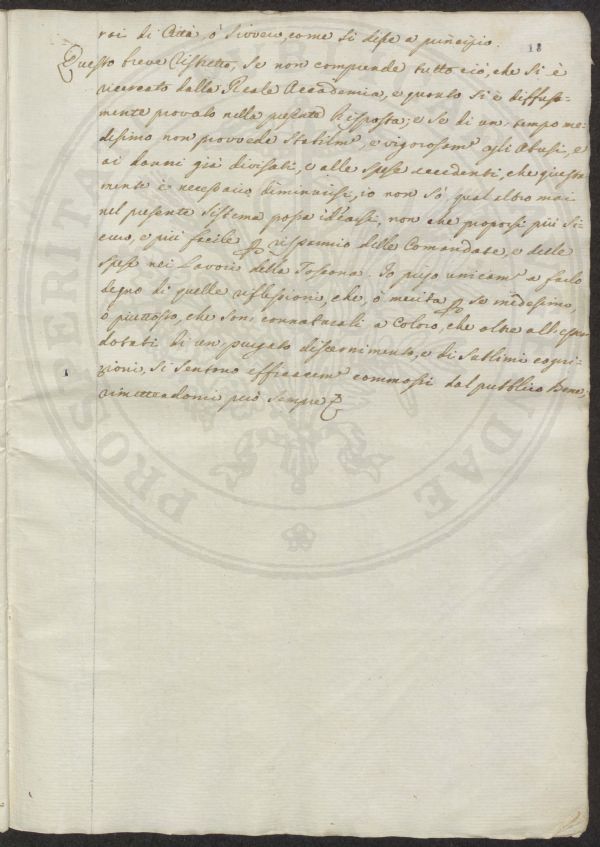 18
rai di Città, ò sivvero, come si disse a principio.
Questo breve Ristretto, se non comprende tutto ciò, che si è
ricercato dalla Reale Accademia, e quanto si è diffusa-
mente provato nella presente Risposta; e se di un tempo me-
desimo non provvede stabilm.e e vigorosam.e agli Abusi, e
ai danni già divisati, e alle spese eccedenti, che giusta-
mente è necessario diminuirsi, io non sò qual altro mai
nel presente sistema possa idearsi, non che proporsi più si-
curo, e più facile p risparmio delle Comandate, e delle
spese nei Lavori della Toscana. Io priego unicam.e a farlo
degno di quelle riflessioni, che, ò merita p se medesimo,
o piuttosto, che son connaturali a Coloro, che oltre all'esser
dotati di un purgato discernimento, e di sublimi cogni-
zioni, si sentono efficacem.e commossi dal pubblico Bene,
rimettendomi però sempre
PROSPERITA